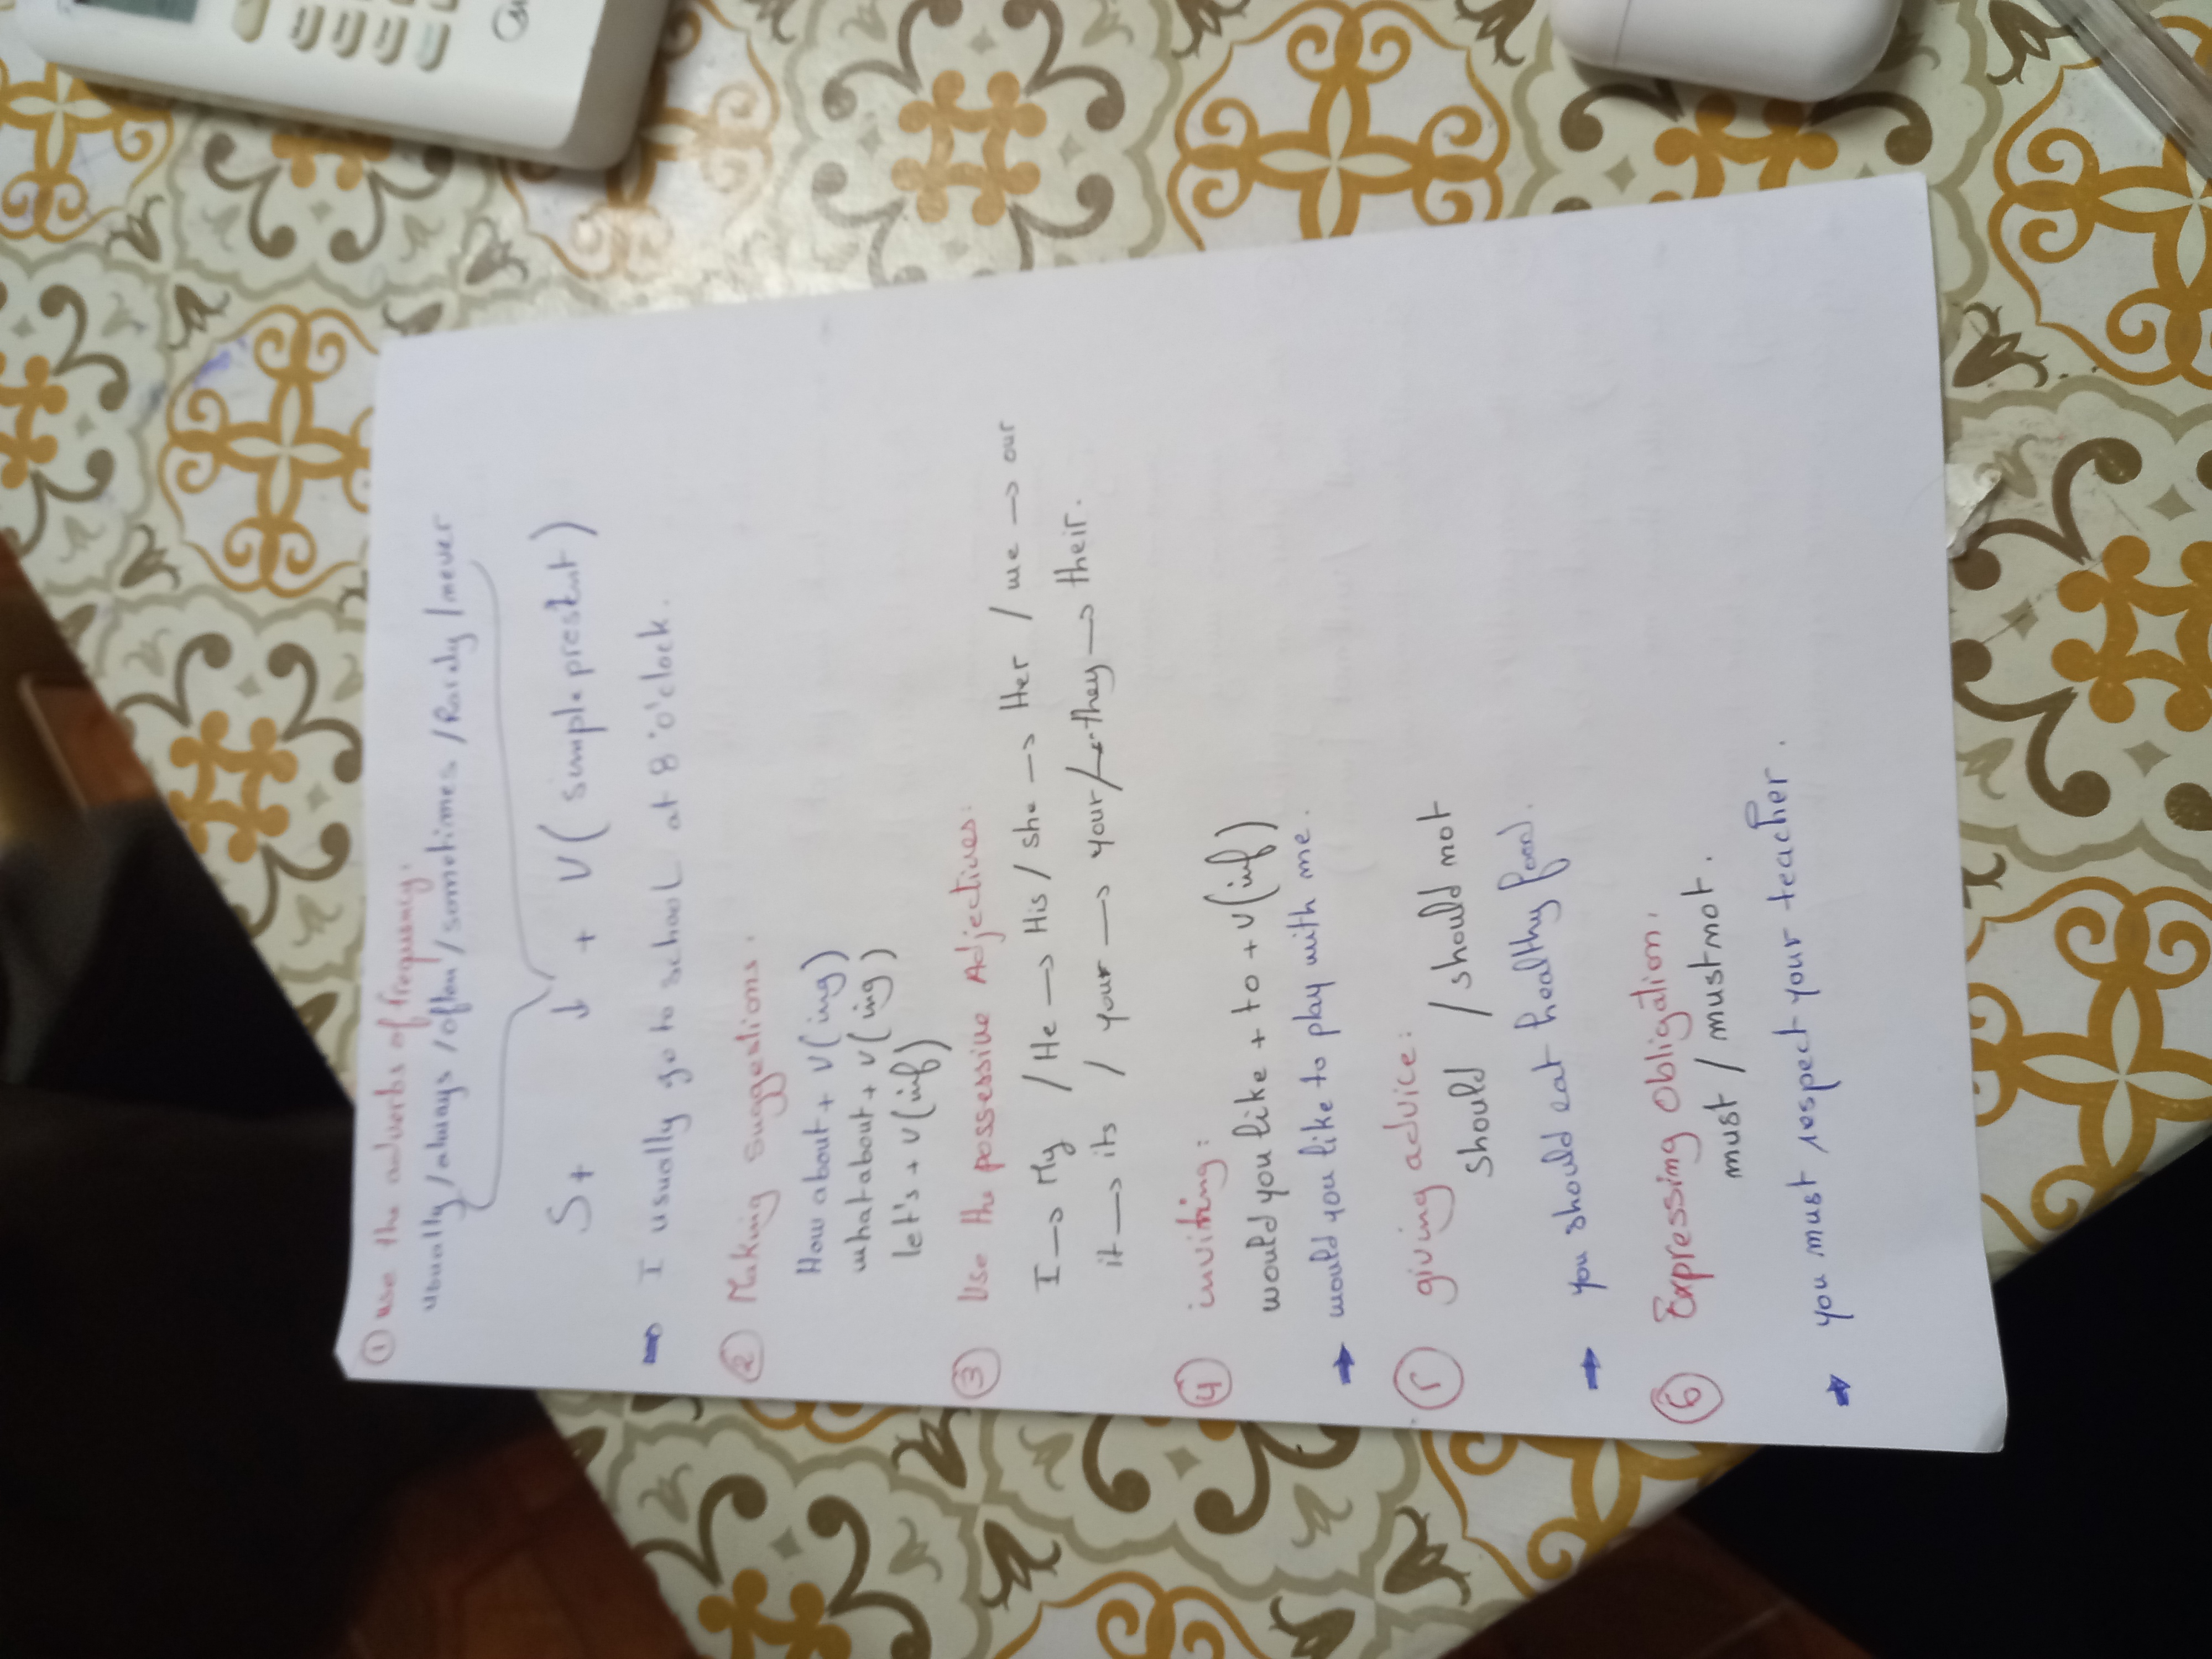 ① use the adverbs of frequency:
usually / always / often / sometimes / Rarely / never
S + ↓ + V ( simple present )
➡ I usually go to school at 8 'o'clock.
② Making suggestions:
How about + V(ing)
what about + V(ing)
let's + V(inf)
③ Use the possessive Adjectives:
I → My / He → His / she → Her / we → our
it → its / your → your / they → their.
④ inviting:
would you like + to + V(inf)
➡ would you like to play with me.
⑤ giving advice:
should / should not
➡ you should eat healthy food.
⑥ Expressing Obligation:
must / must not.
➡ you must respect your teacher.